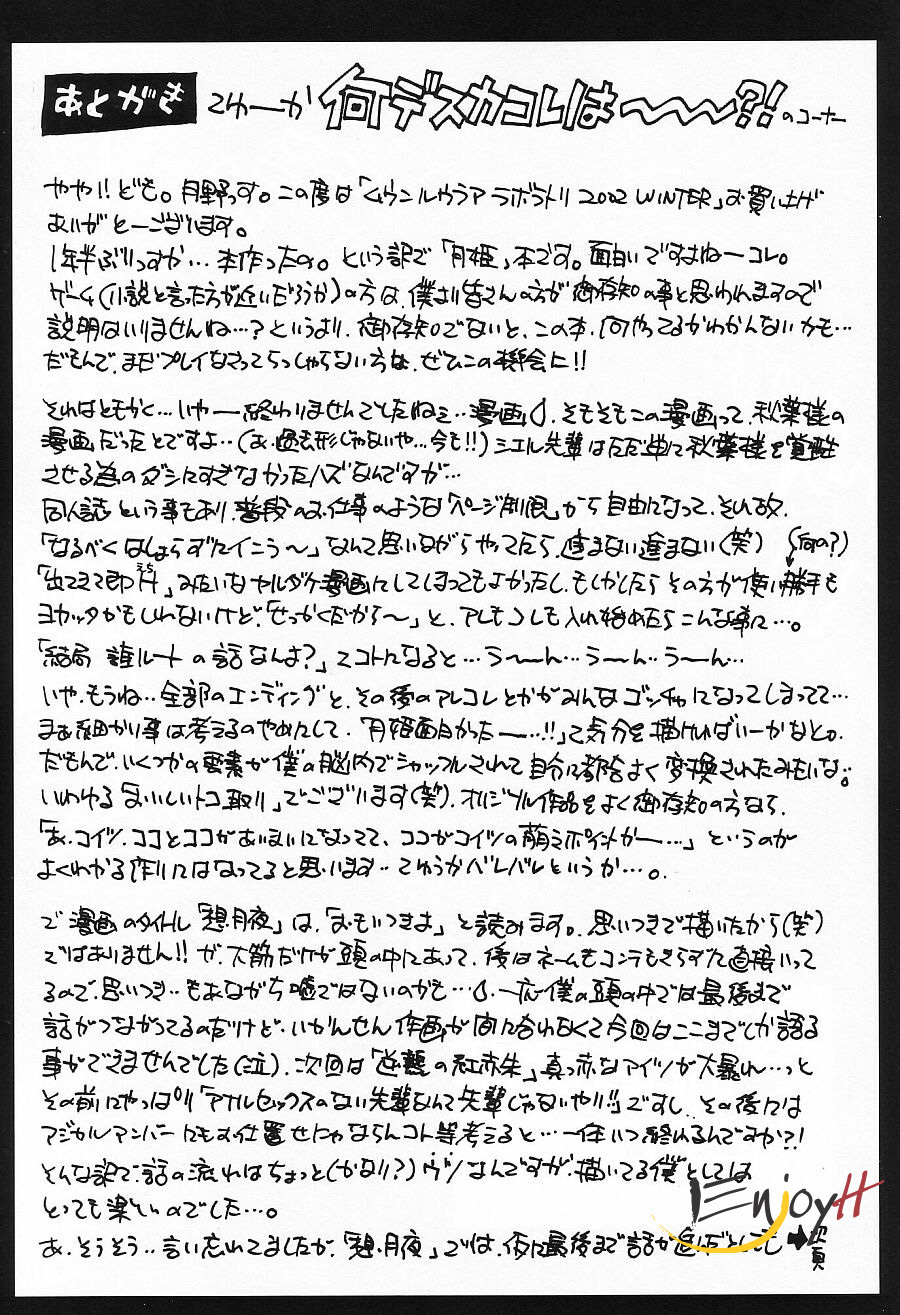 あとがき てゆーか 何デスカコレは〜〜〜?! のコーナー
やや!!ども。月野っす。この度は「ムウンルウラア ラボラトリ 2002 WINTER」お買い上げ
ありがとーございます。
1年半ぶりっすか…本作ったの。という訳で「月姫」本です。面白いですよねーコレ。
ゲーム(小説と言った方が近いだろうか)の方は、僕より皆さんの方が御存知の事と思われますので
説明はいりませんね…?というより、御存知でないと、この本、何やってるかわかんないかも…
だもんで、まだプレイなさってらっしゃらない方は、ぜひこの機会に!!
それはともかく…いやー終わりませんでしたねェ…漫画。そもそもこの漫画って、秋葉様の
漫画だったとですよ…(あ、過去形じゃないや…今も!!)シエル先輩はただ単に秋葉様を覚醒
させる為のダシにすぎなかったハズなんですが…
同人誌という事もあり、普段のお仕事のような「ページ制限」から自由になって、それ故、
「なるべくはしょらずにイこう〜」なんて思いながらやってたら、進まない進まない(笑) (何の?)
「出てきて即H」みたいなヤルダケ漫画にしてしまってもよかったし、もしかしたらその方が使い勝手も
ヨカッタかもしれないけど、「せっかくだから〜」と、アレもコレも入れ始めたらこんな事に…。
「結局 誰ルートの話なんよ?」てコトになると…う〜〜ん…う〜ん…う〜ん…
いや、もうね…全部のエンディングと、その後のアレコレとかがみんなゴッチャになってしまってて…
まぁ細かい事は考えるのやめにして、「月姫面白かったー…!!」て気分を描ければいーかなと。
だもんで、いくつかの要素が僕の脳内でシャッフルされて自分に都合よく変換されたみたいな。
いわゆる「おいしいトコ取り」でございます(笑)。オリジナル作品をよく御存知の方なら、
「あ、コイツ、ココとココがあいまいになってて、ココがコイツの萌えポイントかー…」というのが
よくわかる作りにはなってると思います…てゆうかベレバレというか…。
で 漫画のタイトル「想月夜」は、「おもいつきよ」と読みます。思いつきで描いたから(笑)
ではありません!!が、大筋だけが頭の中にあって、後はネームもコンテもきらずた直接いって
るので、思いつき…もあながち嘘ではないのかも…。一応僕の頭の中では最後まで
話がつながってるのだけど、いかんせん作画が間に合わなくて今回はここまでしか語る
事ができませんでした(泣)。次回は「逆襲の紅赤朱」真っ赤なアイツが大暴れ…っと
その前にやっぱり「アナルセックスのない先輩なんて先輩じゃないやい!!」ですし、その後には
マジカルアンバーにもお仕置せにゃならんコト等考えると…一体いつ終れるんですか?!
そんな訳で、話の流れはちょっと(かなり?)ヴソなんですが、描いてる僕としては
とっても楽しいのでした…。
あ、そうそう…言い忘れてましたが、「想月夜」では、仮に最後まで話が進んだとしても ➡次頁
EnjoyH